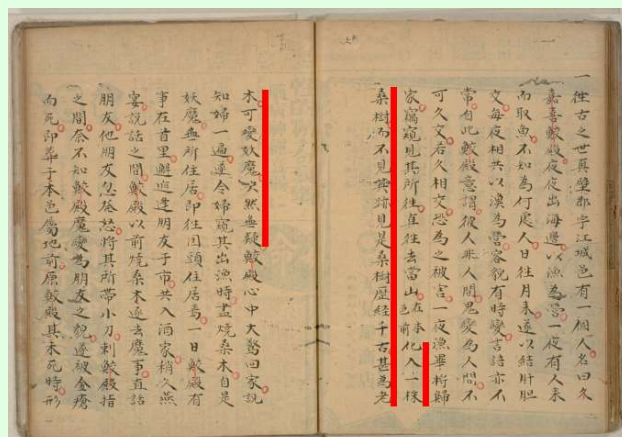 一往古之世真壁郡宇江城邑有一個人名曰久
嘉喜鮫殿夜夜出海邊以漁為營一夜有人来
而取魚不知為何處人日往月来遂以結肝胆
交每夜相共以漁為營容貌有時變古語亦不
常自此鮫殿意謂彼人非人間鬼變為人間不
可久交若久相交恐為之被害一夜漁畢桁歸
家竊窺見其所往直往去當山在本邑前化入一株
桑樹而不見其跡見是桑樹歴經千古甚為老
木可變妖魔必然無疑鮫殿心中大驚囘家説
知婦一遍遂令婦窺其出漁時盡燒桑木自是
妖魔無所住居即往囯頭住居焉一日鮫殿有
事在首里邂逅逢朋友于市共入酒家稍久燕
宴説話之間鮫殿以前燒桑木逐去魔事直話
朋友他朋友忽發怒将其所帯小刀刺鮫殿指
之間奈不知鮫殿魔變為朋友之貌遂被金瘡
而死即葬于本邑屬地前原鮫殿其未死時形